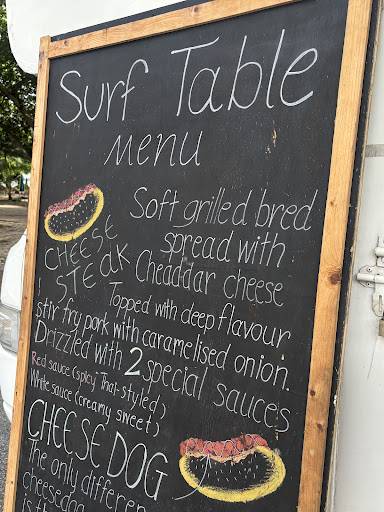 Surf Table
Menu
CHEESE
STEAK
Soft grilled bred
spread with
Cheaddar cheese
Topped with deep flavour
stir fry pork with caramelised onion.
Drizzled with 2 special sauces
Red sauce (spicy Thai-styled)
White sauce (creamy sweet)
CHEESE DOG
The only differen
cheesedog
is th